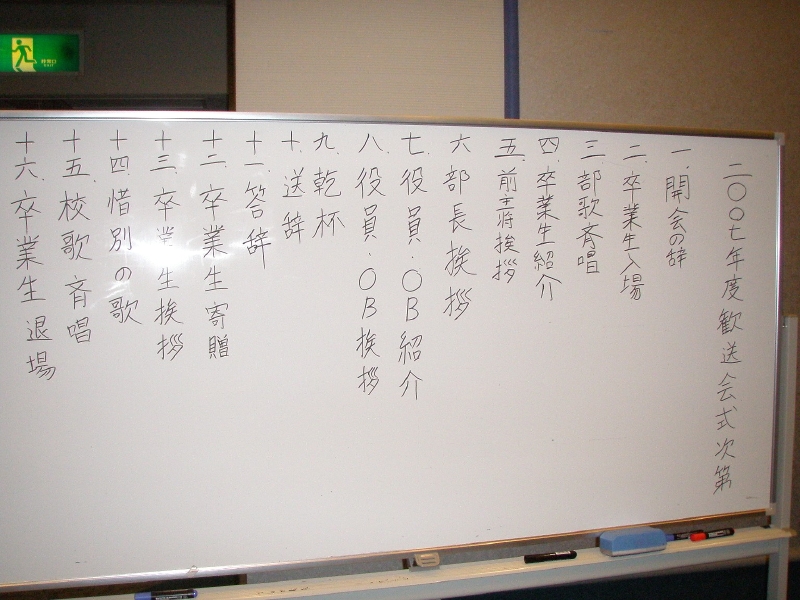 二〇〇七年度歓送会式次第
一.開会の辞
二.卒業生入場
三.部歌斉唱
四.卒業生紹介
五.前主将挨拶
六.部長挨拶
七.役員・OB紹介
八.役員・OB挨拶
九.乾杯
十.送辞
十一.答辞
十二.卒業生寄贈
十三.卒業生挨拶
十四.惜別の歌
十五.校歌斉唱
十六.卒業生退場
非常口
EXIT